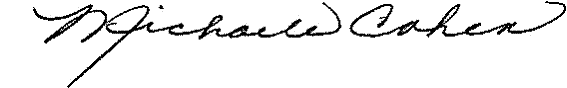 Michaele Cohen